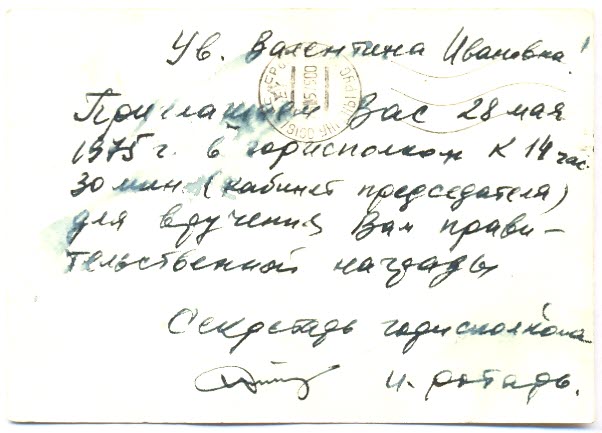 Ув. Валентина Ивановна!
Приглашаем Вас 28 мая
1975 г. в горисполком к 14 час.
30 мин. (кабинет председателя)
для вручения Вам прави-
тельственной награды
Секретарь горисполкома
и. ротарь.